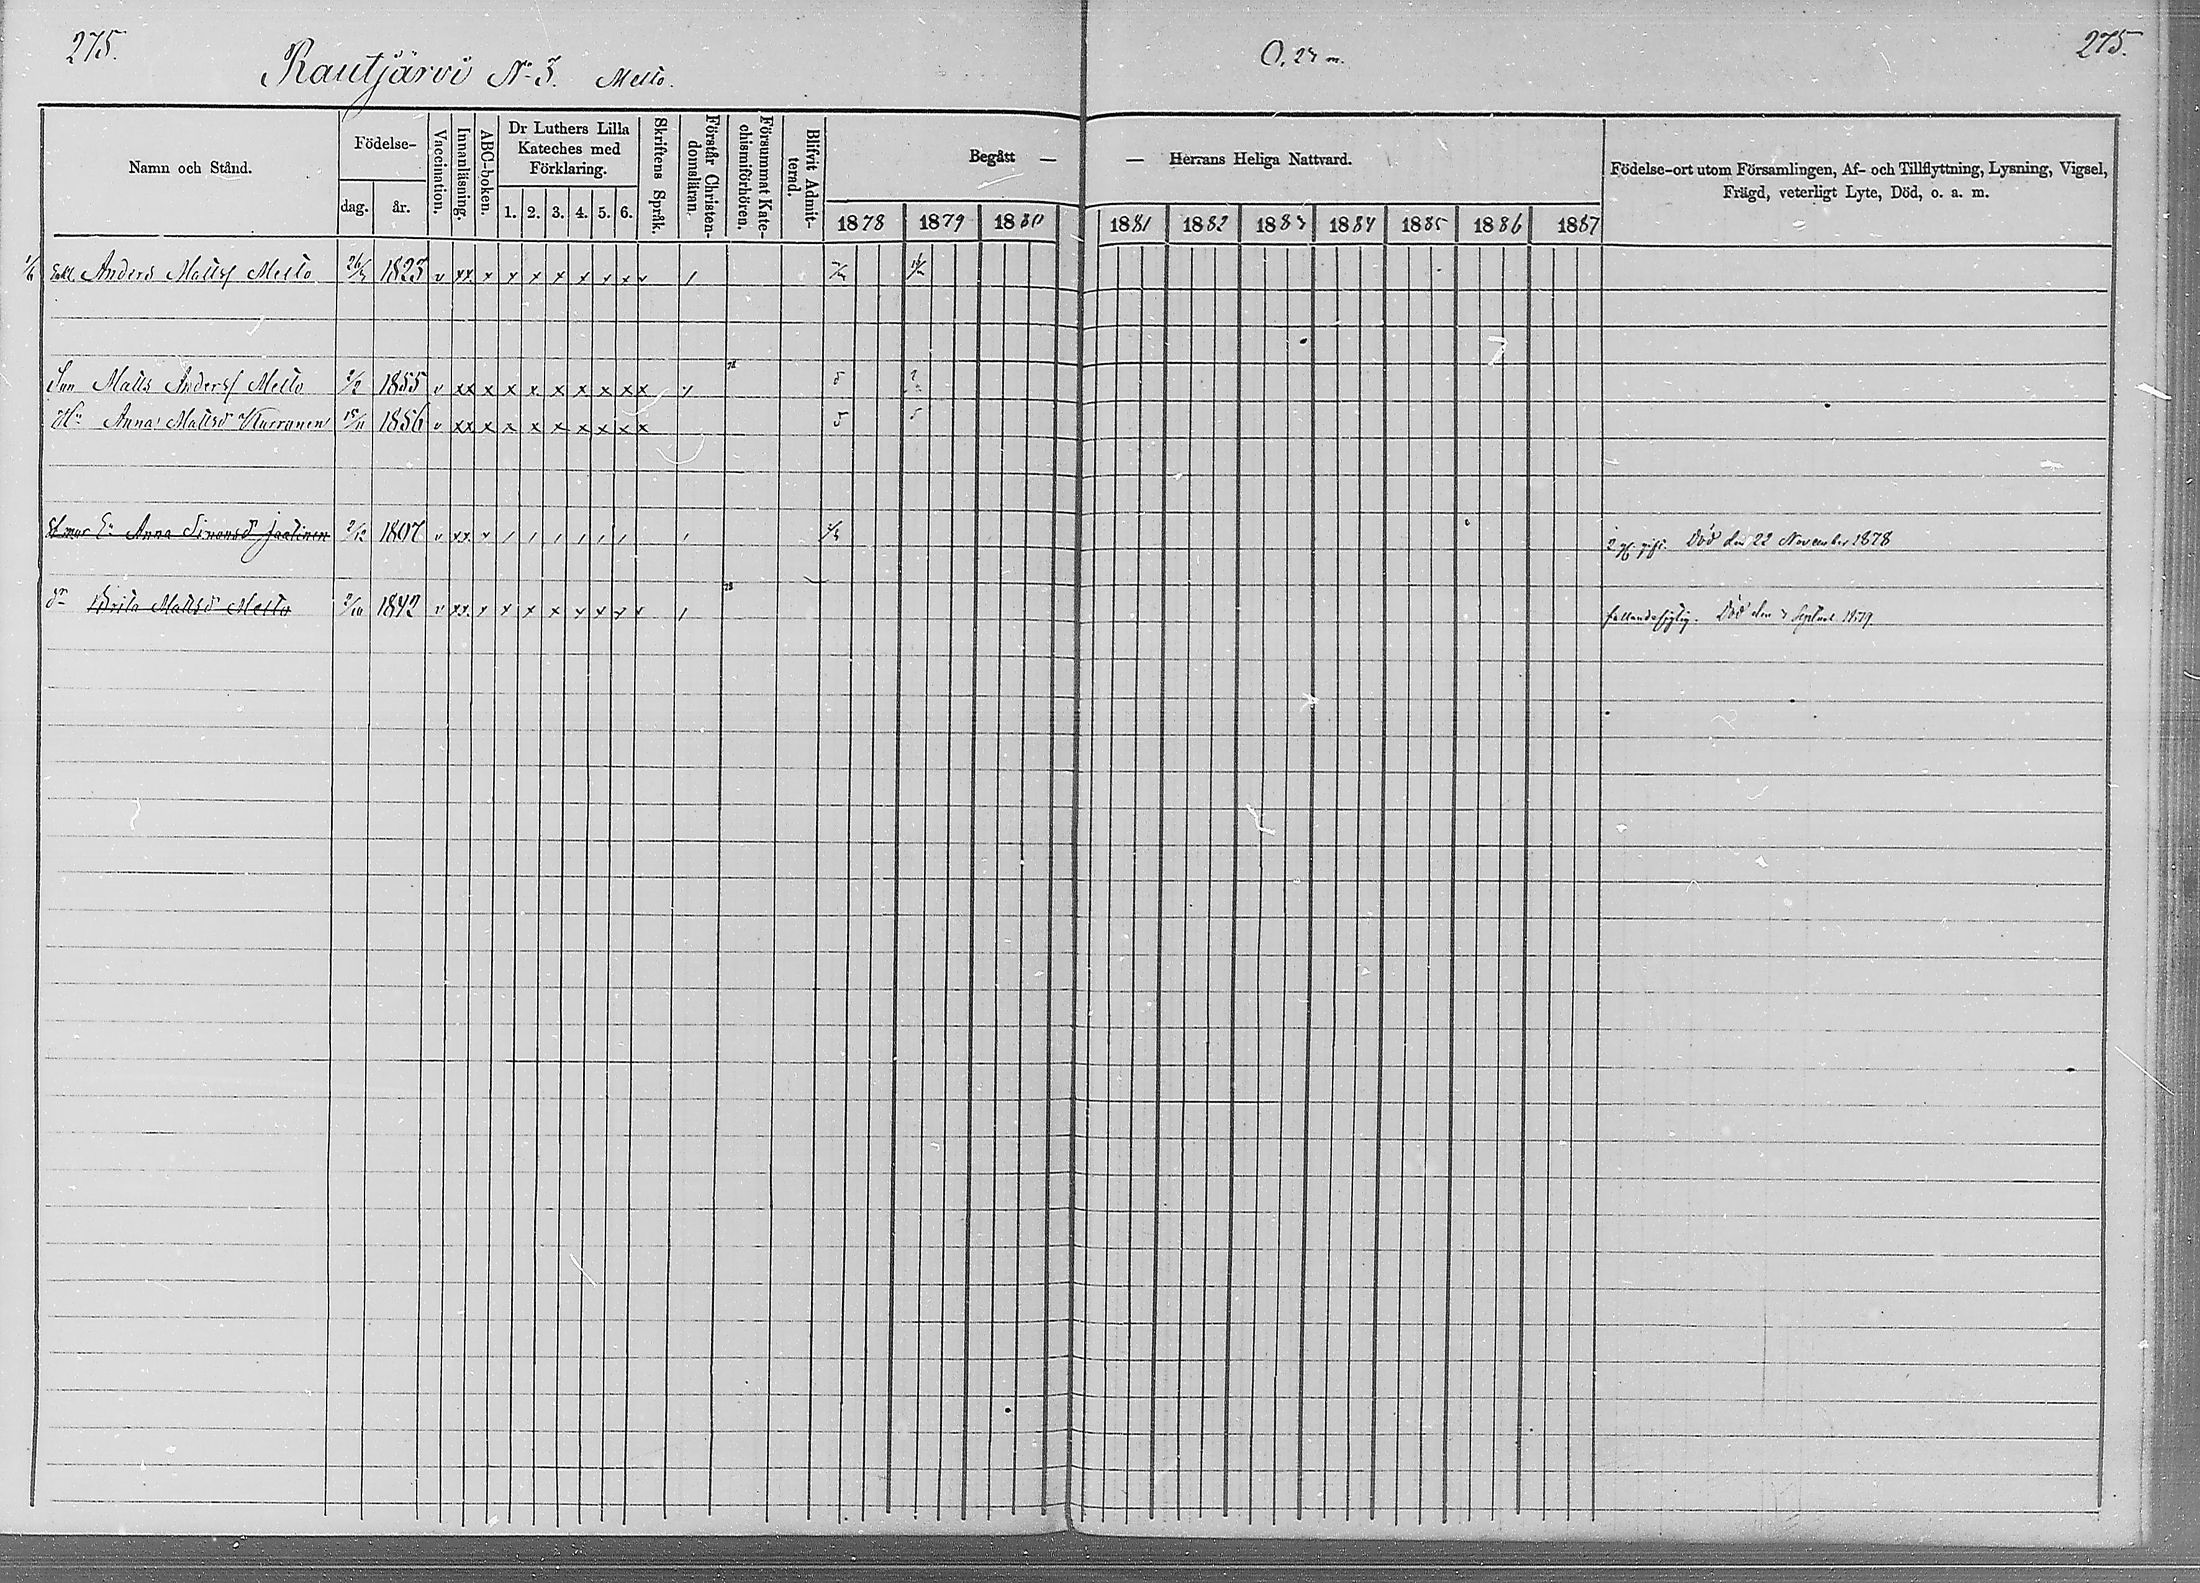 275.
Rautjärvi No 3. Mello.
O, 27 m.
275.
Namn och Stånd.
Födelse-
dag.
år.
Vaccination.
Innanläsning.
ABC-boken.
Dr Luthers Lilla
Kateches med
Förklaring.
1. 2. 3. 4. 5. 6.
Skriftens Språk.
Förstår Christen-
domsläran.
Försummat Kate-
chismiförhören.
Blifvit Admit-
terad.
Begått —
— Herrans Heliga Nattvard.
1878 1879 1880 1881 1882 1883 1884 1885 1886 1887
Födelse-ort utom Församlingen, Af- och Tillflyttning, Lysning, Vigsel,
Frägd, veterligt Lyte, Död, o. a. m.
Anders Mattsf Mello 1823 v xx x x x x x x x x
Son Matts Andersf Mello 2/2 1855 v xx x x x x x x x x
Hu Anna Mattsd Kurronen 15/11 1856 v xx x x x x x x x x
Anna Simonsd Jaatinen 2/12 1807 v xx x Död den 22 November 1878
dr Brita Mattsd Mello 2/10 1842 v xx x x x x x x x x fallandesjuk. Död den 7 Septemb 1879